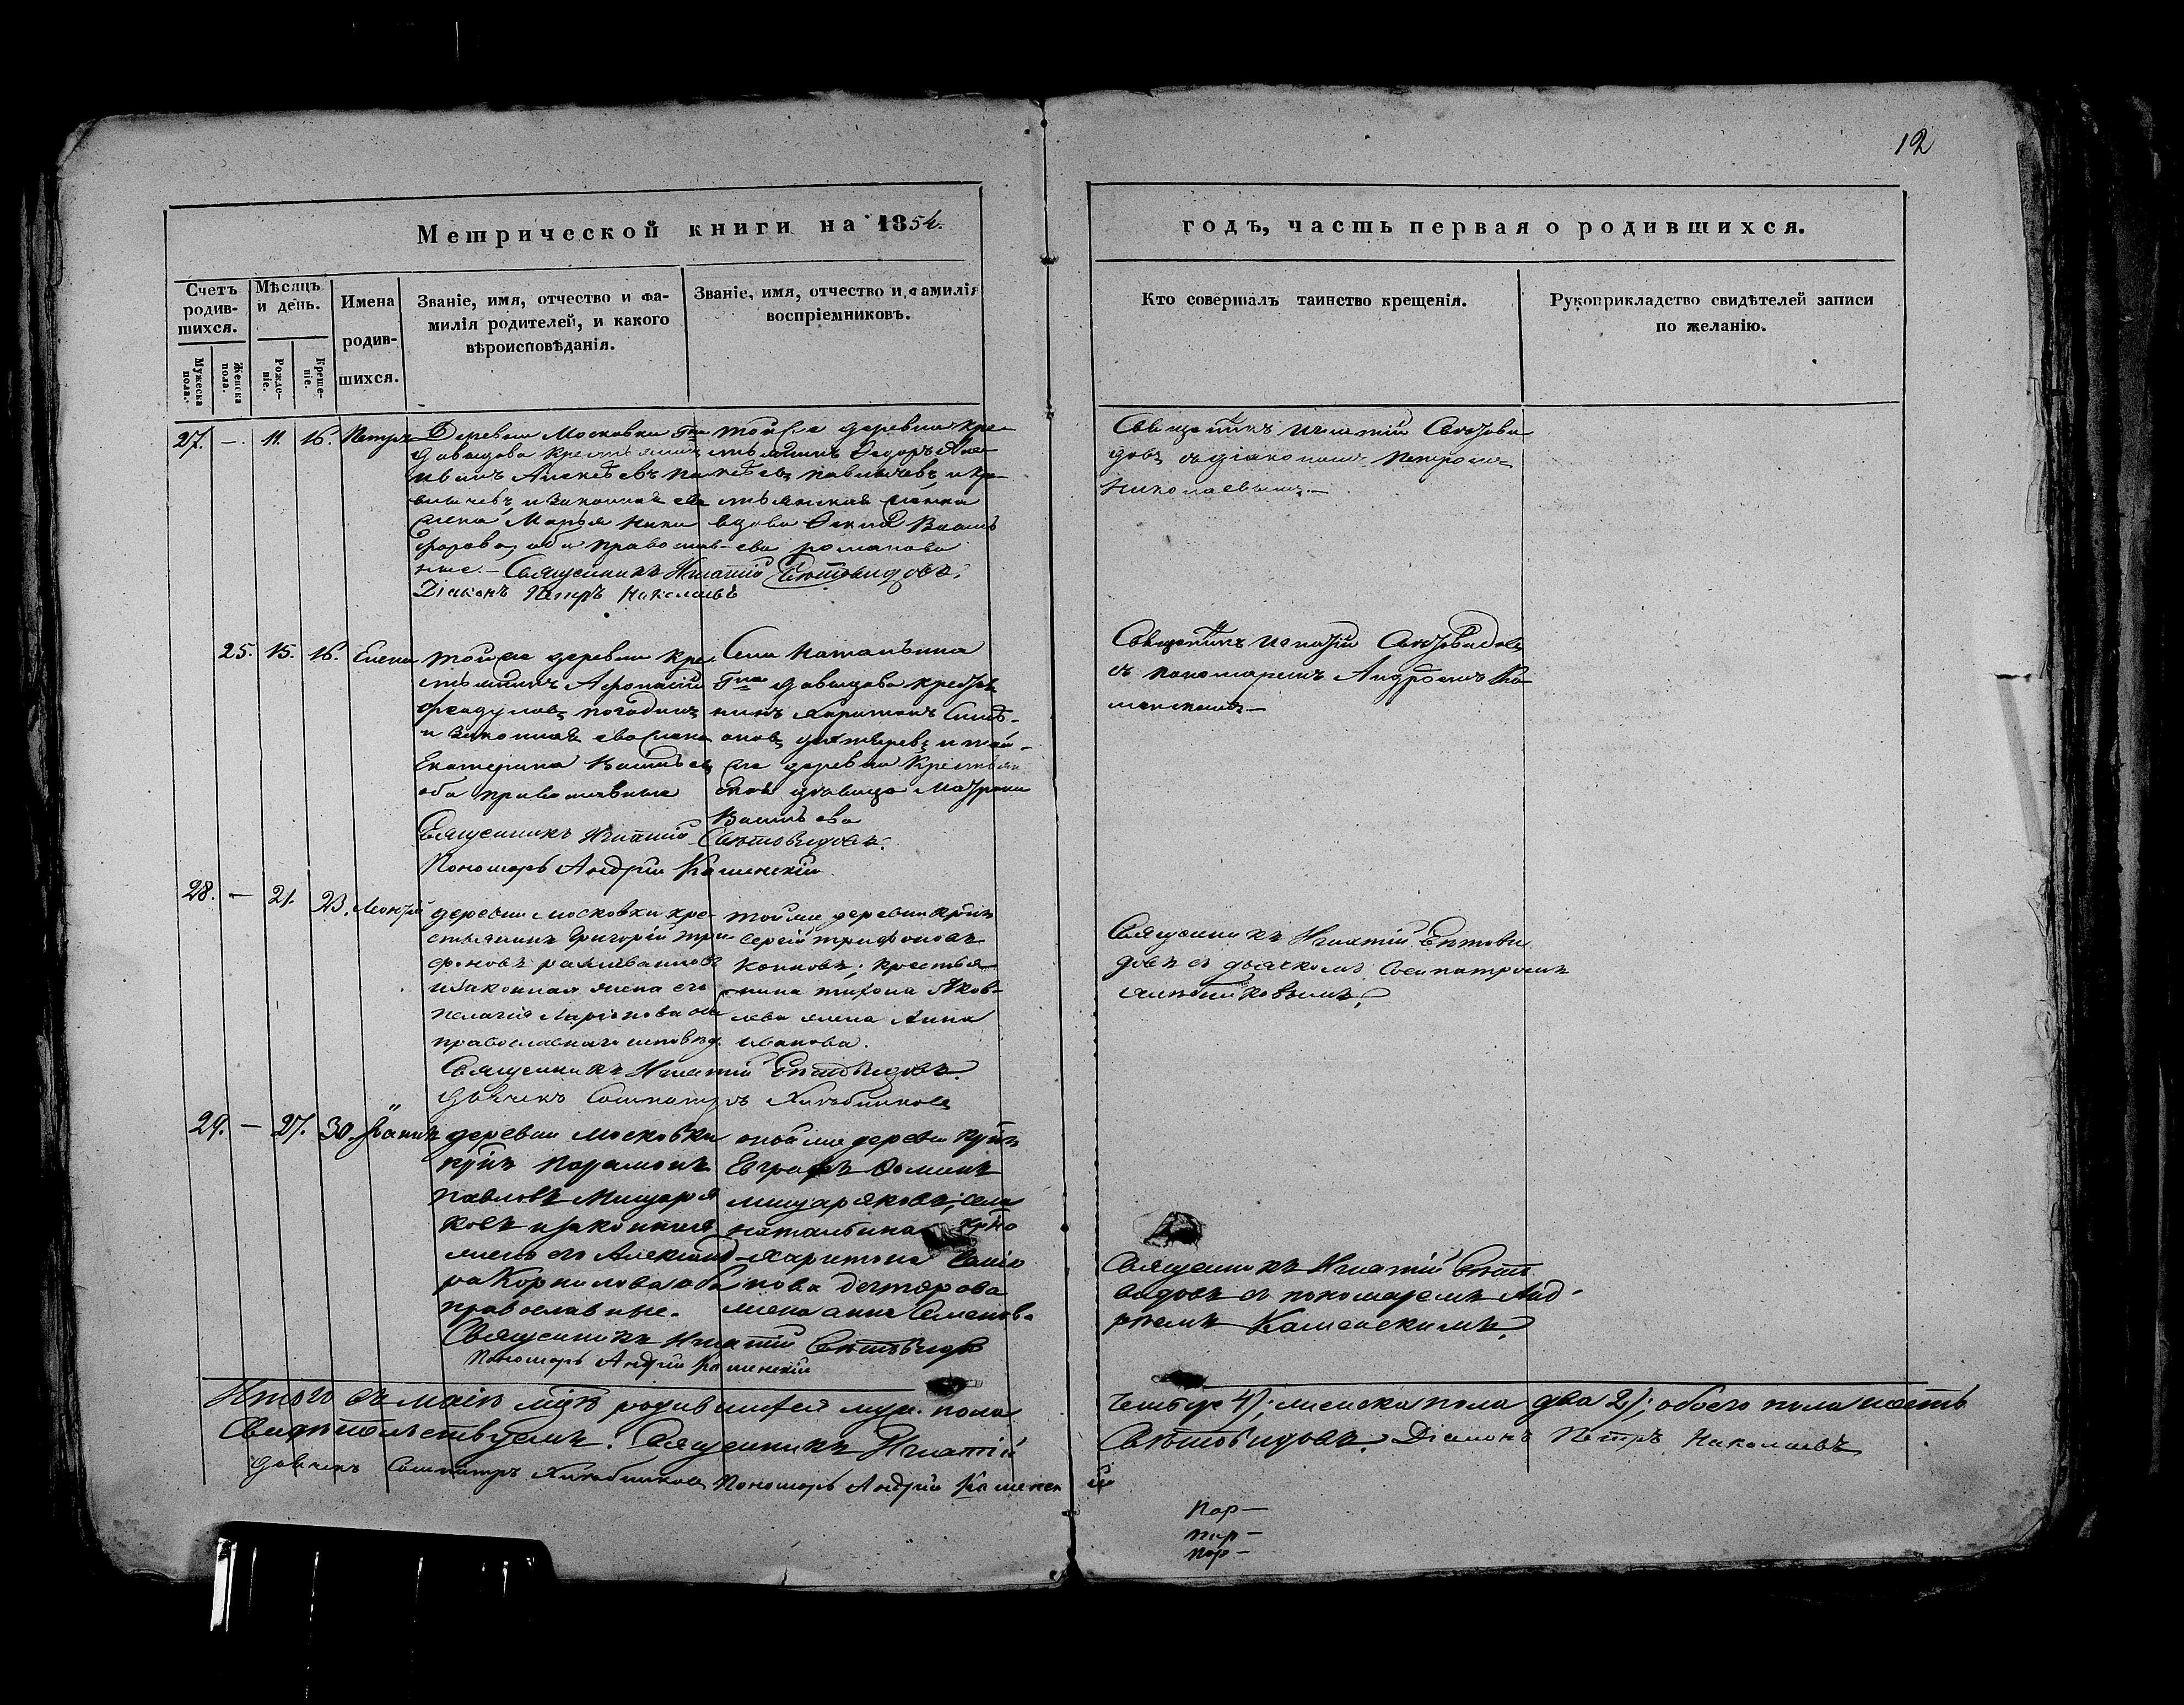 12
Метрической книги на 1854.
годъ, часть первая о родившихся.
Счетъ родив-шихся.
Мужеска пола.
Женска пола.
Мѣсяцъ и день.
Рожде-ніе.
Креще-ніе.
Имена родив-шихся.
Званіе, имя, отчество и фа-
милія родителей, и какого
вѣроисповѣданія.
Званіе, имя, отчество и фамилія
воспріемниковъ.
Кто совершалъ таинство крещенія.
Рукоприкладство свидѣтелей записи
по желанію.
27. — 11. 16. Петръ
Деревни Московки Гна
Давыдова крестьянинъ
Алексѣевъ Па-
и законная его
жена Марья Ники
форова, оба православ-
ные. — Священникъ Игнатій Свѣтовидовъ.
Діаконъ Петръ Николаевъ
той же деревни кре-
стьянинъ Федоръ Але-
ксѣевъ и кре-
стьянская женка
вдова Васильева
Романова
Священникъ Игнатій Свѣтови
довъ съ діакономъ Петромъ
Николаевымъ. —
25. 15. 16. Елена
той же деревни кре-
стьянинъ Афонасій
Феодуловъ Погодинъ
и законная его жена
Екатерина
оба православные
Священникъ Игнатій Свѣтовидовъ.
Пономарь Андрей Каменскій
Села Натальина
Гна Давыдова крестья
нинъ Харитонъ Симе-
оновъ Дехтеревъ и той-
же деревни крестьян
ская дѣвица Матрона
Священникъ Игнатій Свѣтовидовъ
съ пономаремъ Андреемъ Ка-
менскимъ —
28. — 21. 23. Леонтій
деревни Московки кре-
стьянинъ Григорій Три-
фоновъ
и законная жена его
Пелагія Ларіонова оба
православнаго исповѣд.
Священникъ Игнатій Свѣтовидовъ.
Дьячекъ Сосипатръ Хлѣбниковъ
той же деревни крн
Сергій Трифоновъ
крестья
нина Тихона Яков-
лева жена Анна
Иванова.
Священникъ Игнатій Свѣтови
довъ съ дьячкомъ Сосипатромъ
Хлѣбниковымъ.
29. — 27. 30.
деревни Московки
крнъ Парамонъ
Павловъ Мищеря
ковъ и законная
жена его Александ
ра Корнилова оба
православные.
Священникъ Игнатій Свѣтовидовъ
Пономарь Андрей Каменскій
оной же деревни крнъ
Евграфъ Фоминъ
Мищеряковъ; села
Натальина крн
Харитона Симіо
нова Дехтярова
жена Анна Семенова
Священникъ Игнатій Свѣто
видовъ съ пономаремъ Анд-
реемъ Каменскимъ.
Итого въ маіѣ мцѣ родившихся муж. пола
четыре 4); женска пола два 2); обоего пола шесть
Свидѣтельствуемъ. Священникъ Игнатій
Свѣтовидовъ. Діаконъ Петръ Николаевъ
Дьячекъ Сосипатръ Хлѣбниковъ Пономарь Андрей Каменскій
Пар —
Пар —
Пар —